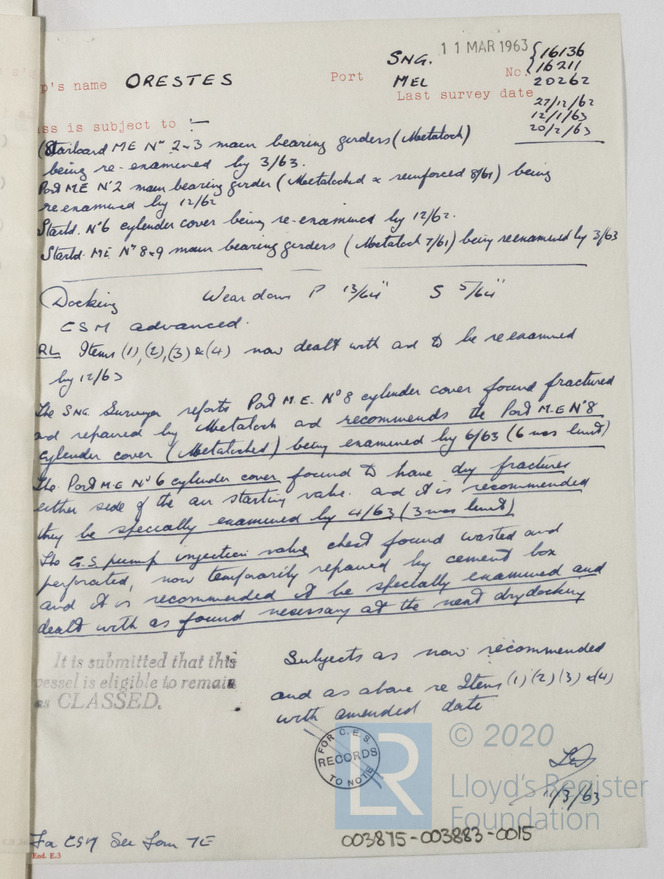 11 MAR 1963
SNG. { 16136
16211
p's name ORESTES Port MEL No. 20262
Last survey date 27/12/62
12/1/63
20/2/63
ss is subject to :-
(Starboard ME Nº 2+3 main bearing girders (Metalock)
being re-examined by 3/63.
Port ME Nº 2 main bearing girder (Metalocked & reinforced 8/61) being
re examined by 12/62
Starbd. Nº 6 cylinder cover being re-examined by 12/62.
Starbd. ME Nº 8+9 main bearing girders (Metalock 7/61) being reexamined by 3/63
Docking Wear down P 13/64" S 5/64"
CSM advanced.
RL Items (1), (2), (3) & (4) now dealt with and to be reexamined
by 12/63
The SNG. Surveyor reports Port M.E. Nº 8 cylinder cover found fractured
and repaired by Metalock and recommends the Port M.E Nº 8
cylinder cover (Metalocked) being examined by 6/63 (6 mos limit)
The Port ME Nº 6 cylinder cover found to have dry fractures
either side of the air starting valve. and it is recommended
they be specially examined by 4/63 (3 mos limit)
The G.S pump injection valve chest found wasted and
perforated, now temporarily repaired by cement box
and it is recommended it be specially examined and
dealt with as found necessary at the next drydocking
It is submitted that this
vessel is eligible to remain
as CLASSED.
Subjects as now recommended
and as above re Items (1) (2) (3) & (4)
with amended date
FOR C.E.S.
RECORDS
TO NOTE
11/3/63
LR
© 2020
Lloyd's Register
Foundation
For CSM See form TE
End. E.3
003875-003883-0015